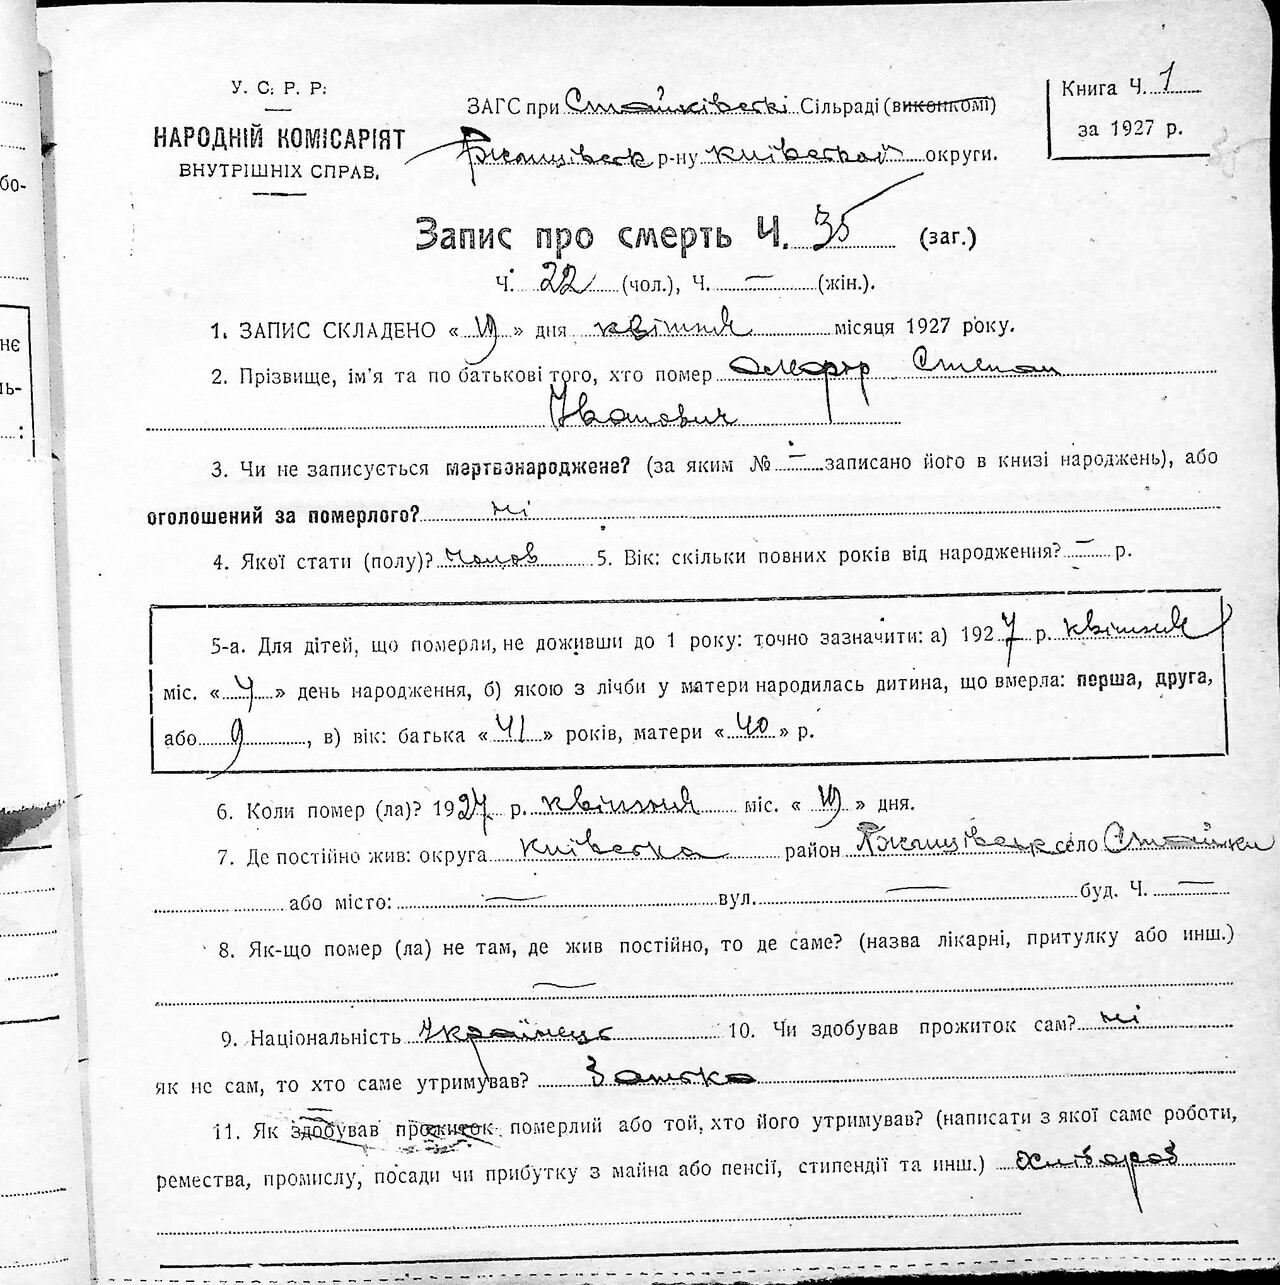 У. С. Р. Р.
НАРОДНІЙ КОМІСАРІЯТ
ВНУТРІШНІХ СПРАВ.
ЗАГС при Стайківській Сільраді (виконкомі)
Ржищівськ р-ну Київської округи.
Книга Ч. 1
за 1927 р.
Запис про смерть Ч. 35 (заг.)
Ч. 22 (чол.), Ч. — (жін.).
1. ЗАПИС СКЛАДЕНО « 19 » дня квітня місяця 1927 року.
2. Прізвище, ім'я та по батькові того, хто помер Степан
Іванович
3. Чи не записується мертвонароджене? (за яким № — записано його в книзі народжень), або
оголошений за померлого? ні
4. Якої стати (полу)? чолов 5. Вік: скільки повних років від народження? — р.
5-а. Для дітей, що померли, не доживши до 1 року: точно зазначити: а) 1927 р. квітня
міс. « 4 » день народження, б) якою з лічби у матери народилась дитина, що вмерла: перша, друга,
або 9, в) вік: батька « 41 » років, матери « 40 » р.
6. Коли помер (ла)? 1927 р. квітня міс. « 19 » дня.
7. Де постійно жив: округа Київська район Ржищівськ село Стайки
або місто: — вул. — буд. Ч. —
8. Як-що помер (ла) не там, де жив постійно, то де саме? (назва лікарні, притулку або инш.)
—
9. Національність Українець 10. Чи здобував прожиток сам? ні
як не сам, то хто саме утримував? Батько
11. Як здобував прожиток померлий або той, хто його утримував? (написати з якої саме роботи,
ремества, промислу, посади чи прибутку з майна або пенсії, стипендії та инш.) хлібороб
бо-
нє
ль-
: